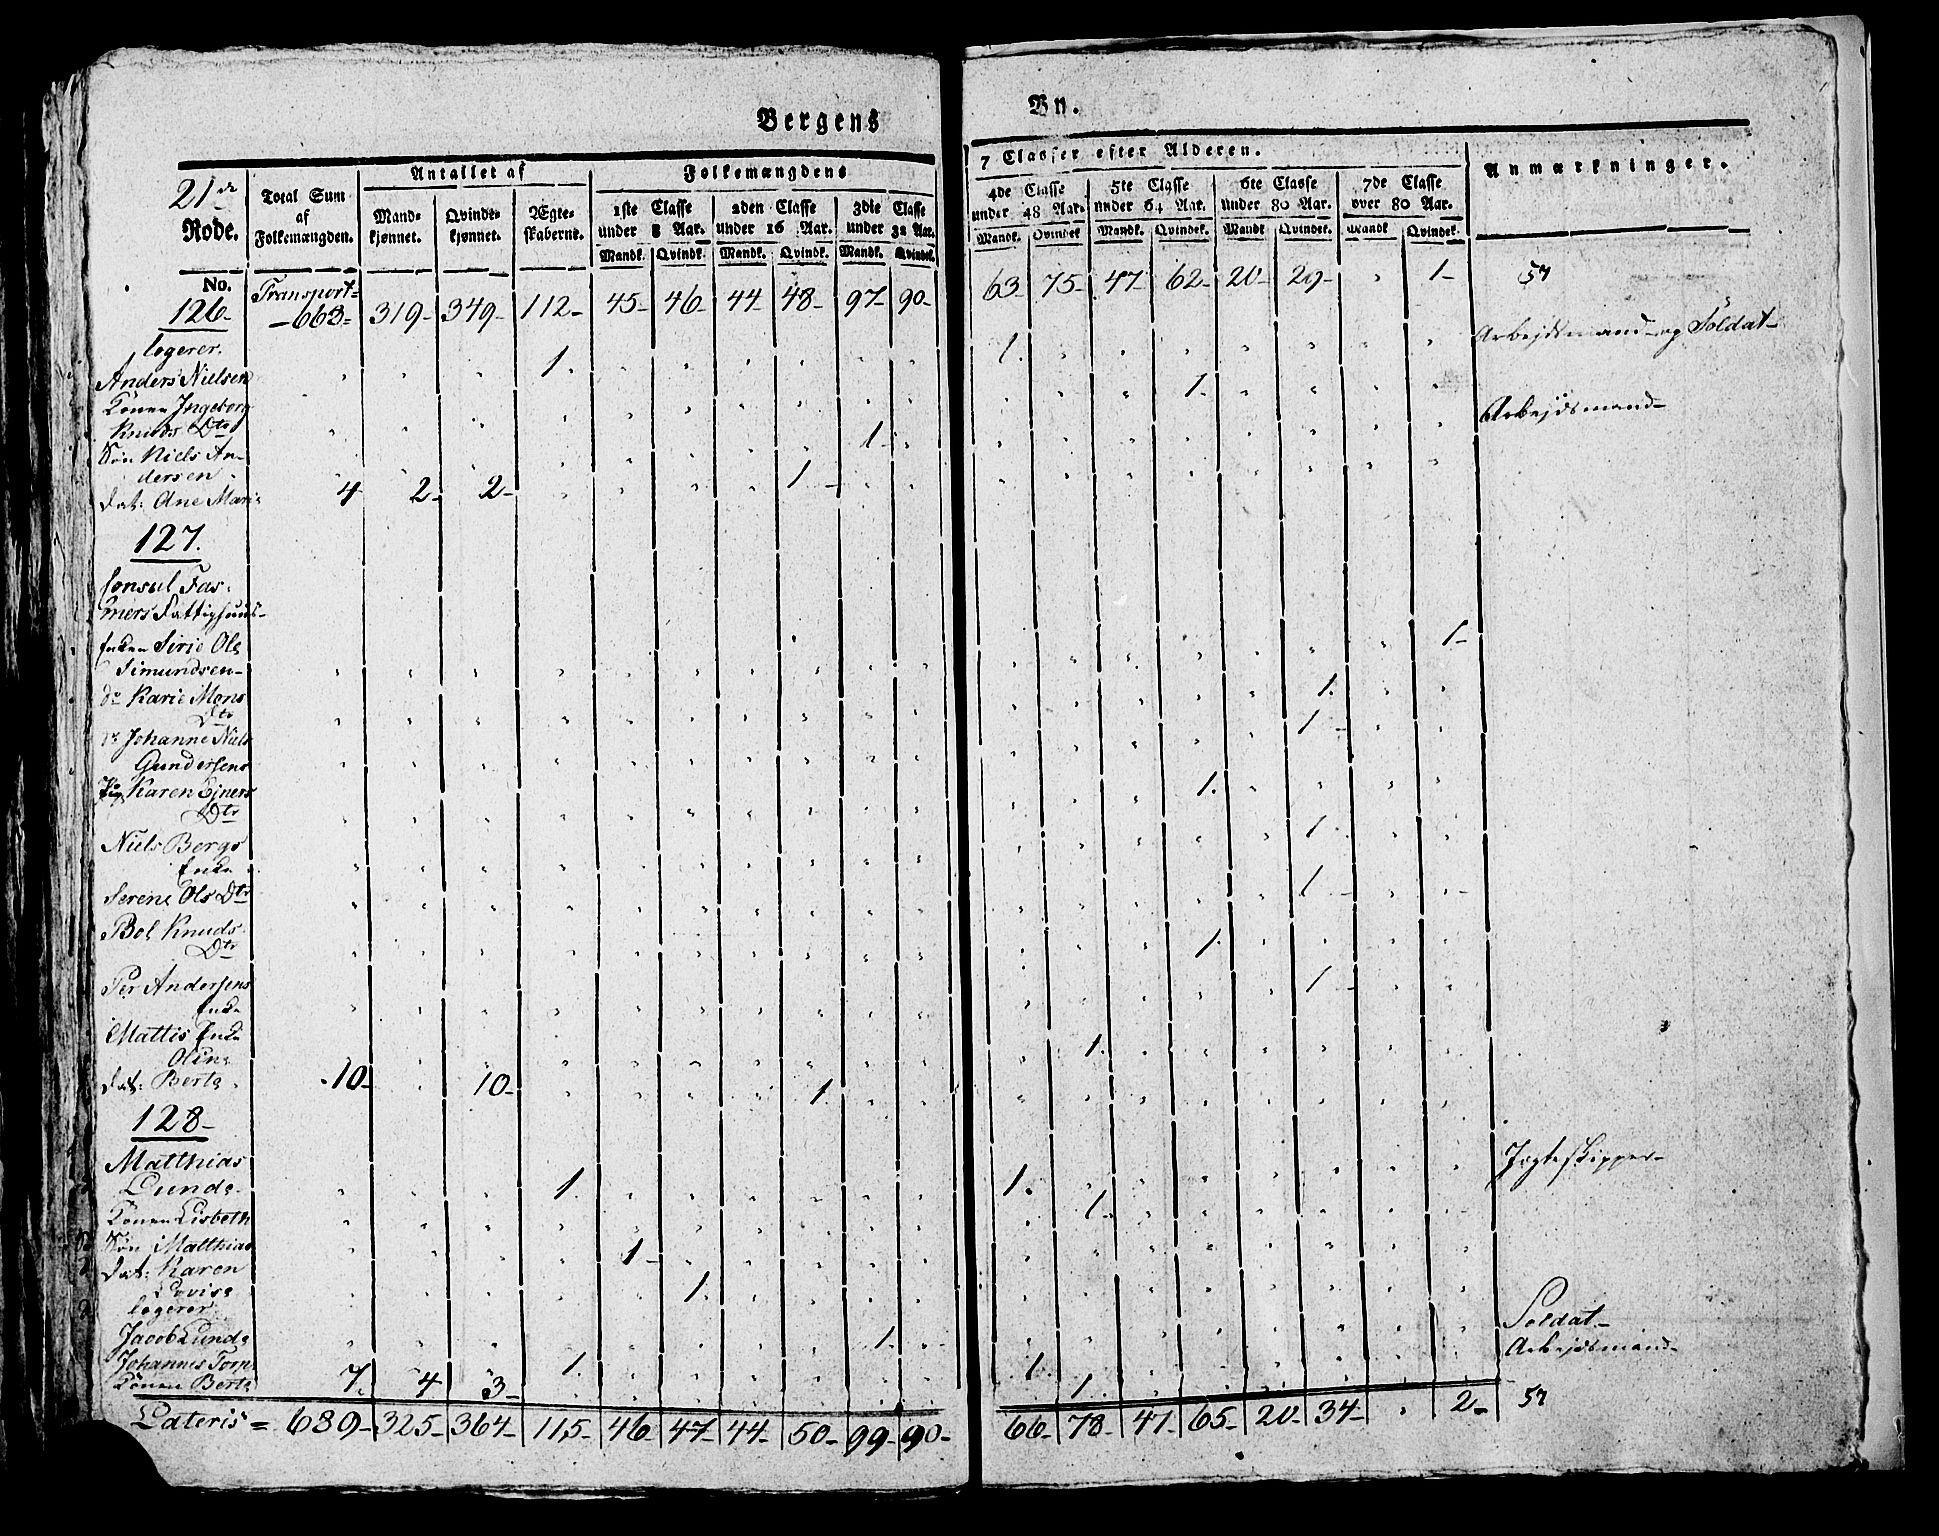 Bergens By.
21de Rode.
Total Sum af Folkemængden.
Antallet af
Mandkjønnet. Qvindekjønnet. Ægteskaberne.
Folkemængdens 7 Classer efter Alderen.
1ste Classe under 8 Aar. 2den Classe under 16 Aar. 3die Classe under 32 Aar. 4de Classe under 48 Aar. 5te Classe under 64 Aar. 6te Classe under 80 Aar. 7de Classe over 80 Aar.
Mandk. Qvindk. Mandk. Qvindk. Mandk. Qvindek. Mandk. Qvindek. Mandk. Qvindek. Mandk. Qvindek. Mandk. Qvindek.
Anmærkninger.
No. Transport
126 668 319 349 112 45 46 44 48 97 90 63 75 47 62 20 29 " 1
logerer.
Anders Nielsen 1. 1. Arbejdsmand og Soldat
Konen Ingeborg
Knuds Dtr 1.
Søn Niels An- Arbejdsmand
dersen 1
Dat: Ane Marie 4 2 2 1
127.
Consul Fas-
mers Fattighuus
Enken Sirie Ols
Simundsen 1
do Karie Mons
Dtr 1.
do Johanne Niels
Gundersens 1
Pig Karen Ejners
Dtr 1.
Niels Bergs
Enke 1
Serene Ols Dtr 1
Bol Knuds
Dtr 1.
Per Andersens
Enke 1
Mattis Enke
Oline 1.
Dat: Berte 10 10 1
128
Matthias
Lunde 1. 1. Jagteskipper
Konen Lisbeth 1.
Søn Matthias 1
Dat: Karen
Lovise 1.
logerer
Jacob Lunde 1. Soldat
Johannes Torp 1. 1. Arbejdsmand
Konen Berte 7 4 3 1.
Lateris = 689 325 364 115 46 47 44 50 99 90 66 78 47 65 20 34 . 2